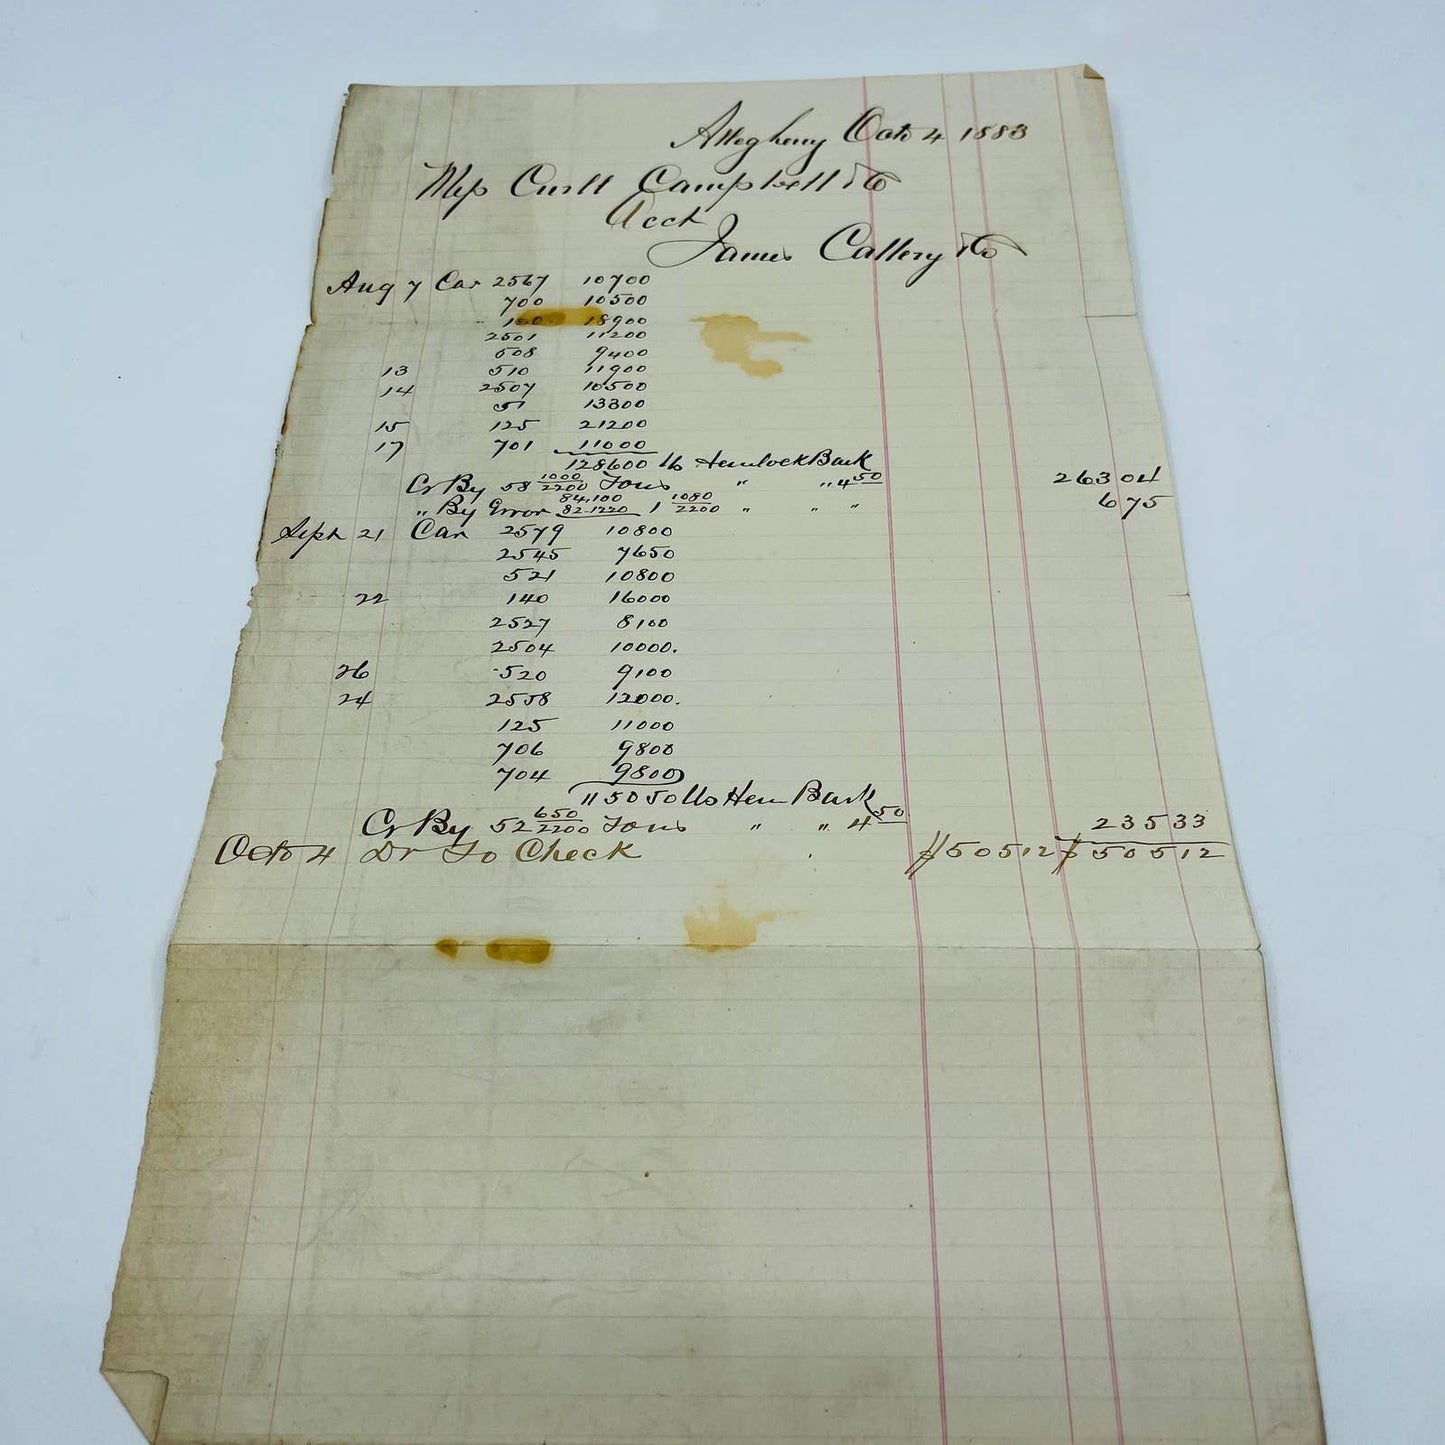 Allegheny Octo 4 1883
Mess Curll Campbell & Co
Acct
James Callery & Co
Aug 7 Car 2567 10700
700 10500
100 18900
2501 11200
508 9400
13 510 11900
14 2507 10500
51 13300
15 125 21200
17 701 11000
128600 lb Hemlock Bark
Cr By 58 1000/2200 Tons " " 4 50 263 04
" By Error 84,100 / 82,1220 1 1080/2200 " " " 6 75
Sept 21 Car 2579 10800
2545 7650
521 10800
22 140 16000
2527 8100
2504 10000.
26 520 9100
24 2558 12000.
125 11000
706 9800
704 9800
115050 lbs Hem Bark
Cr By 52 650/2200 Tons " " 4 50 235 33
Octo 4 Dr To Check $505 12 $505 12